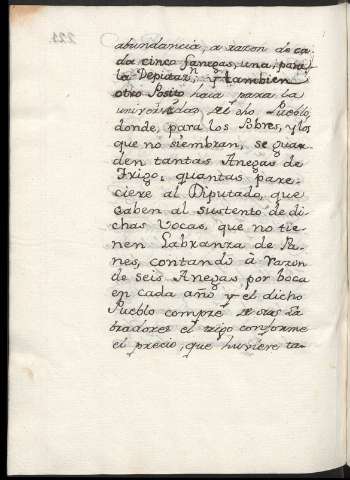 abundancia, a razon de ca-
da cinco fanegas, una, para
la Deputaz.n y tambien
otro Posito haia para la
universidad, del cho Pueblo,
donde, para los Pobres, y los
que no siembran, se guar-
den tantas Anegas de
Trigo, quantas pare-
ciere al Diputado, que
caben al sustento de di-
chas vocas, que no tie-
nen Labranza de Pa-
nes, contando à razon
de seis Anegas, por boca
en cada año y el dicho
Pueblo compre de otros La
bradores el trigo conforme
el precio, que huviere ta-